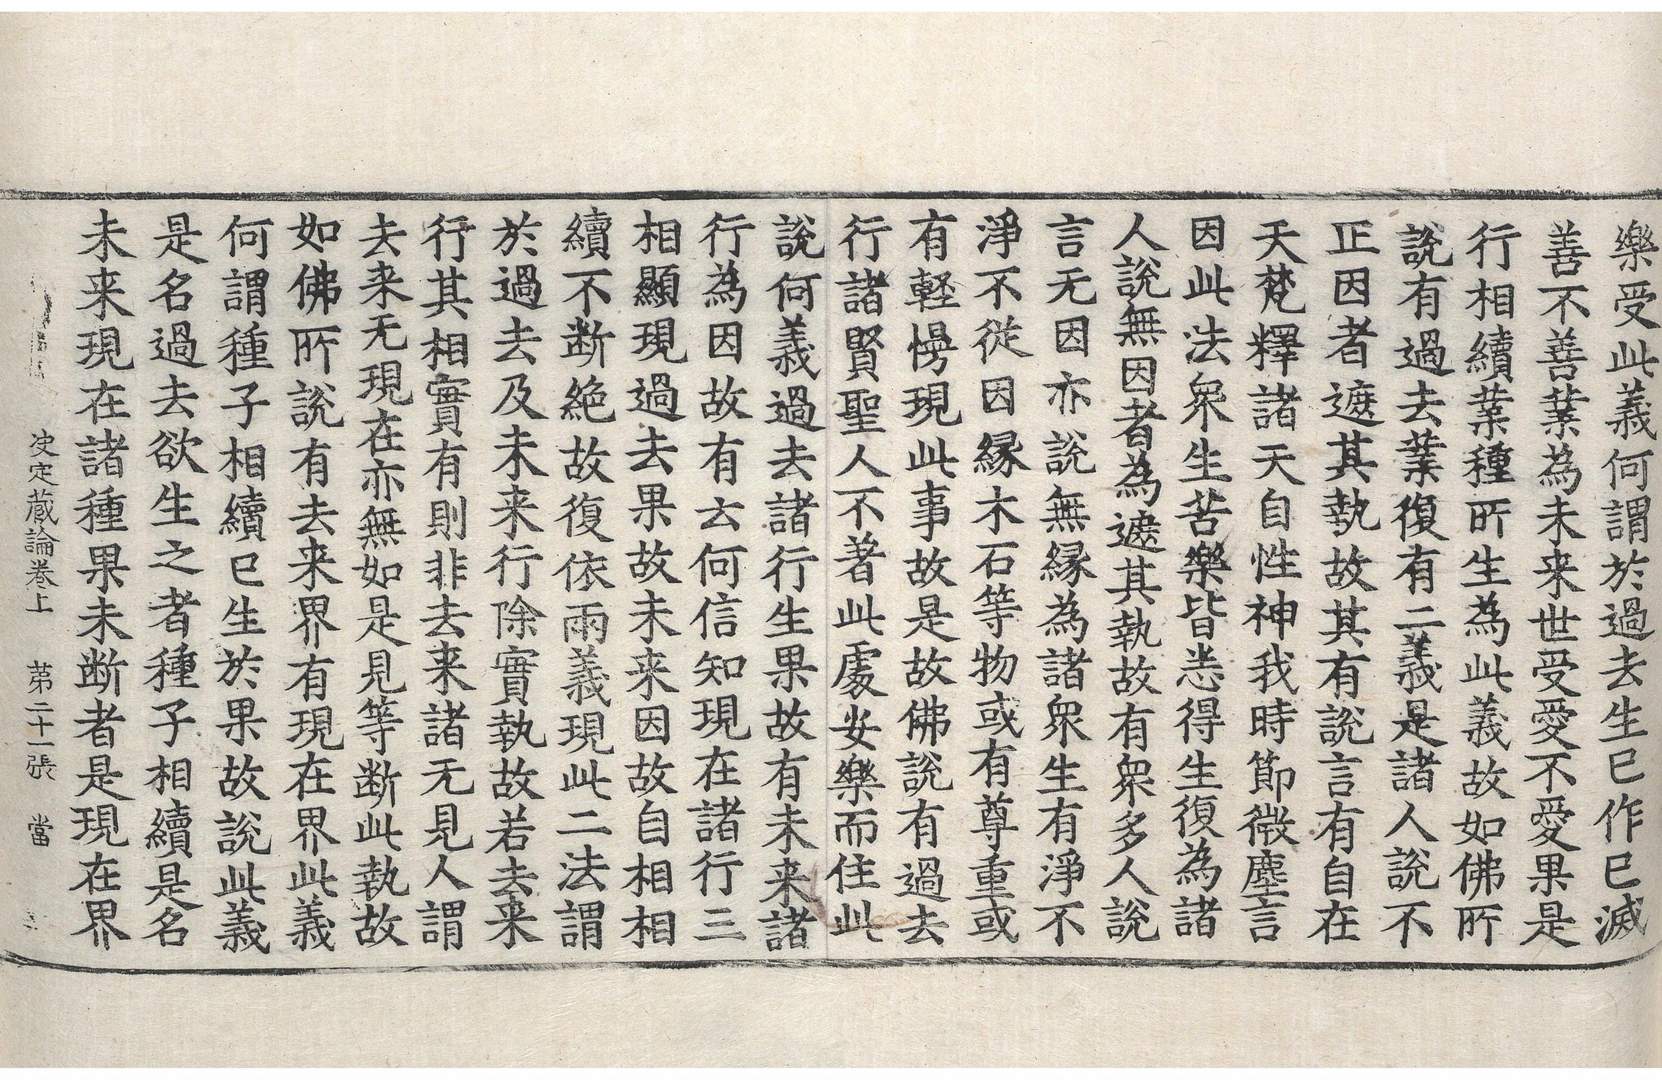 樂受此義何謂於過去生已作已滅
善不善業為未来世受愛不愛果是
行相續業種所生為此義故如佛所
説有過去業復有二義是諸人説不
正因者遮其執故其有説言有自在
天梵釋諸天自性神我時節微塵言
因此法衆生苦樂皆悉得生復為諸
人説無因者為遮其執故有衆多人説
言无因亦説無縁為諸衆生有淨不
淨不從因縁木石等物或有尊重或
有軽慢現此事故是故佛説有過去
行諸賢聖人不著此處安樂而住此
説何義過去諸行生果故有未来諸
行為因故有云何信知現在諸行三
相顯現過去果故未来因故自相相
續不断絶故復依兩義現此二法謂
於過去及未来行除實執故若去来
行其相實有則非去来諸无見人謂
去来无現在亦無如是見等断此執故
如佛所説有去来界有現在界此義
何謂種子相續已生於果故説此義
是名過去欲生之者種子相續是名
未来現在諸種果未断者是現在界
决定蔵論巻上　第二十一張　當